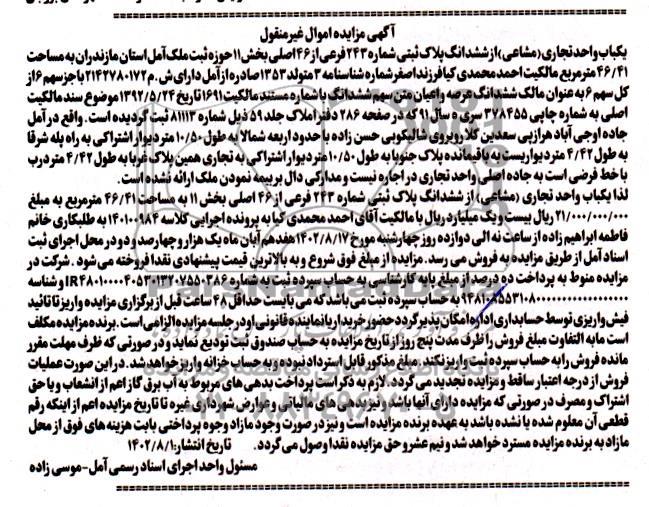 آگهی مزایده اموال غیرمنقول
یکباب واحد تجاری (مشاعی) از ششدانگ پلاک ثبتی شماره ۲۴۳ فرعی از ۴۶ اصلی بخش ۱۱ حوزه ثبت ملک آمل استان مازندران به مساحت
۴۶/۴۱ مترمربع مالکیت احمد محمدی کیا فرزند اصغر شماره شناسنامه ۳ متولد ۱۳۵۳ صادره از آمل دارای ش.م ۲۱۴۲۷۸۰۱۷۲ با جز سهم ۶ از
کل سهم ۶ به عنوان مالک ششدانگ عرصه و اعیان متن سهم ششدانگ با شماره مستند مالکیت ۱۶۹۱ تاریخ ۱۳۹۲/۵/۲۴ موضوع سند مالکیت
اصلی به شماره چاپی ۳۷۸۴۵۵ سری ه سال ۹۱ که در صفحه ۲۸۶ دفتر املاک جلد ۵۹ ذیل شماره ۸۱۱۱۳ ثبت گردیده است. واقع در آمل
جاده اوجی آباد هرازپی سعدین کلا روبروی شالیکوبی حسن زاده با حدود اربعه شمالا به طول ۱۰/۵۰ متر دیوار اشتراکی به راه پله شرقا
به طول ۴/۴۲ متر دیواریست به باقیمانده پلاک جنوبا به طول ۱۰/۵۰ متر دیوار اشتراکی به تجاری همین پلاک غربا به طول ۴/۴۲ متر درب
با خط فرضی است به جاده اصلی واحد تجاری در اجاره نیست و مدارکی دال بر بیمه نمودن ملک ارائه نشده است.
لذا یکباب واحد تجاری (مشاعی) از ششدانگ پلاک ثبتی شماره ۲۴۳ فرعی از ۴۶ اصلی بخش ۱۱ به مساحت ۴۶/۴۱ مترمربع به مبلغ
۲۱/۰۰۰/۰۰۰/۰۰۰ ریال بیست و یک میلیارد ریال با مالکیت آقای احمد محمدی کیا به پرونده اجرایی کلاسه ۱۴۰۱۰۰۹۸۴ به طلبکاری خانم
فاطمه ابراهیم زاده از ساعت نه الی دوازده روز چهارشنبه مورخ ۱۴۰۲/۸/۱۷ هفدهم آبان ماه یک هزار و چهارصد و دو در محل اجرای ثبت
اسناد آمل از طریق مزایده به فروش می رسد. مزایده از مبلغ فوق شروع و به بالاترین قیمت پیشنهادی نقدا فروخته می شود. شرکت در
مزایده منوط به پرداخت ده درصد از مبلغ پایه کارشناسی به حساب سپرده ثبت به شماره و شناسه
به حساب سپرده ثبت می باشد که می بایست حداقل ۴۸ ساعت قبل از برگزاری مزایده واریز تا تائید
فیش واریزی توسط حسابداری اداره امکان پذیر گردد حضور خریدار یا نماینده قانونی او در جلسه مزایده الزامی است. برنده مزایده مکلف
است مابه التفاوت مبلغ فروش را ظرف مدت پنج روز از تاریخ مزایده به حساب صندوق ثبت تودیع نماید و در صورتی که ظرف مهلت مقرر
مانده فروش را به حساب سپرده ثبت واریز نکند. مبلغ مذکور قابل استرداد نبوده و به حساب خزانه واریز خواهد شد. در این صورت عملیات
فروش از درجه اعتبار ساقط و مزایده تجدید می گردد. لازم به ذکر است پرداخت بدهی های مربوط به آب برق گاز اعم از انشعاب و یا حق
اشتراک و مصرف در صورتی که مزایده دارای آنها باشد و نیز بدهی های مالیاتی و عوارض شهرداری غیره تا تاریخ مزایده اعم از اینکه رقم
قطعی آن معلوم شده یا نشده باشد به عهده برنده مزایده است و نیز در صورت وجود مازاد وجوه پرداختی بابت هزینه های فوق از محل
مازاد به برنده مزایده مسترد خواهد شد و نیم عشر و حق مزایده نقدا وصول می گردد. تاریخ انتشار: ۱۴۰۲/۸/۱
مسئول واحد اجرای اسناد رسمی آمل - موسی زاده